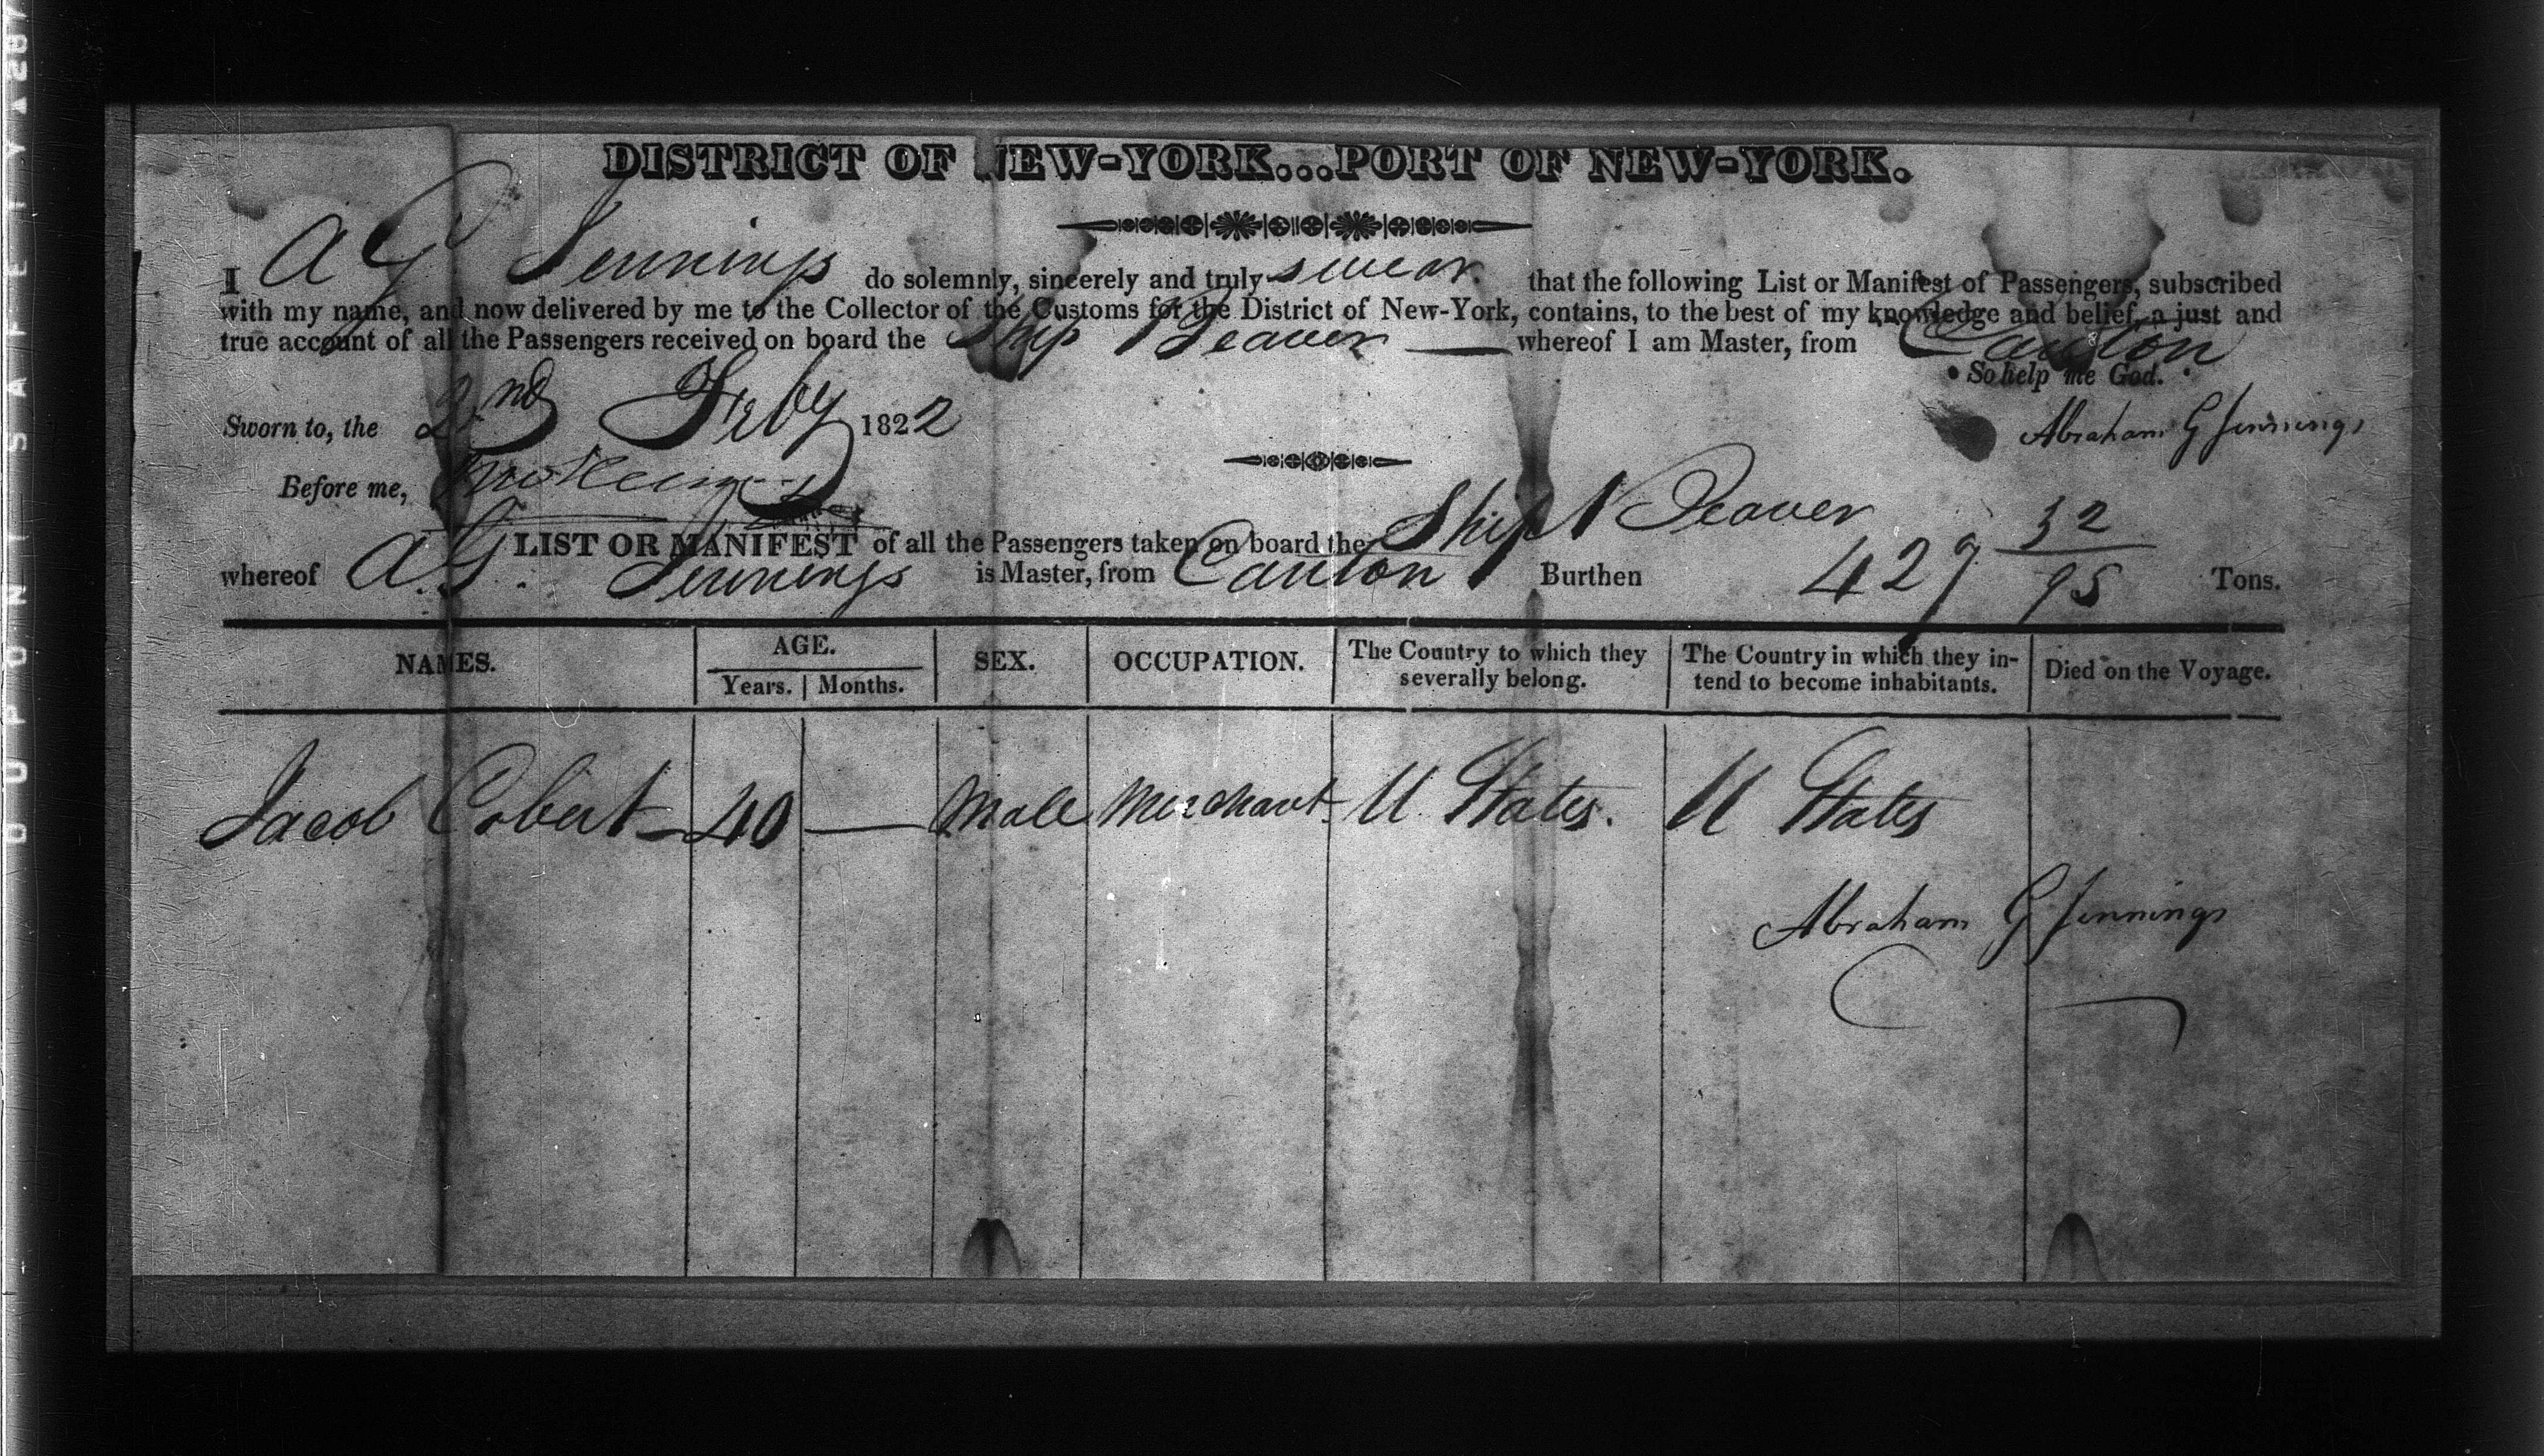 DUPONT SAFETY
DISTRICT OF NEW-YORK...PORT OF NEW-YORK.
I A G Jennings do solemnly, sincerely and truly swear that the following List or Manifest of Passengers, subscribed
with my name, and now delivered by me to the Collector of the Customs for the District of New-York, contains, to the best of my knowledge and belief, a just and
true account of all the Passengers received on board the Ship Beaver whereof I am Master, from Canton
So help me God.
Sworn to, the 2nd Feby 1822
Abraham G Jennings
Before me,
LIST OR MANIFEST of all the Passengers taken on board the Ship Beaver
whereof A. G. Jennings is Master, from Canton Burthen 427 32/95 Tons.
NAMES. AGE. SEX. OCCUPATION. The Country to which they severally belong. The Country in which they in-tend to become inhabitants. Died on the Voyage.
Years. Months.
Jacob 40 — Male Merchant U. States. U States
Abraham G Jennings